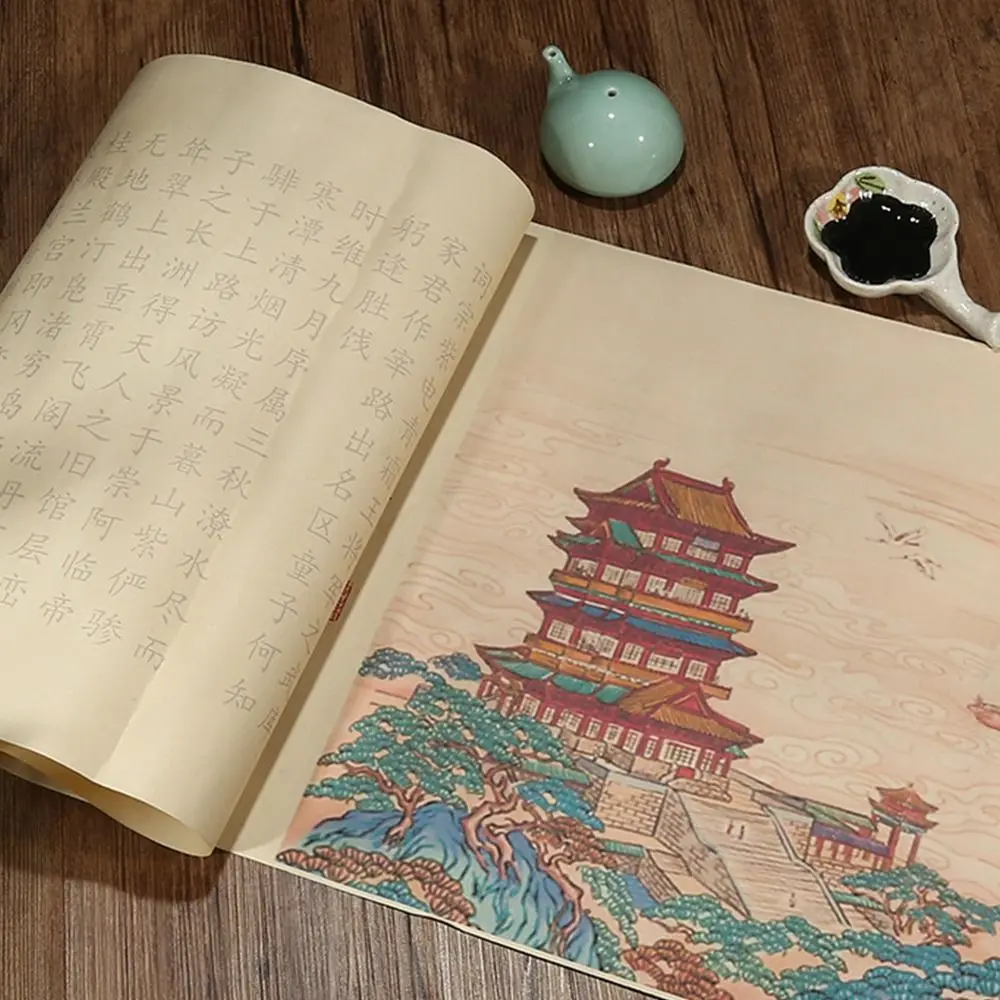 词宗紫电青霜王将军之武库
家君作宰路出名区童子何知
躬逢胜饯
时维九月序属三秋潦水尽而
寒潭清烟光凝而暮山紫俨骖
騑于上路访风景于崇阿临帝
子之长洲得天人之旧馆层峦
耸翠上出重霄飞阁流丹下
无地鹤汀凫渚穷岛
桂殿兰宫即冈